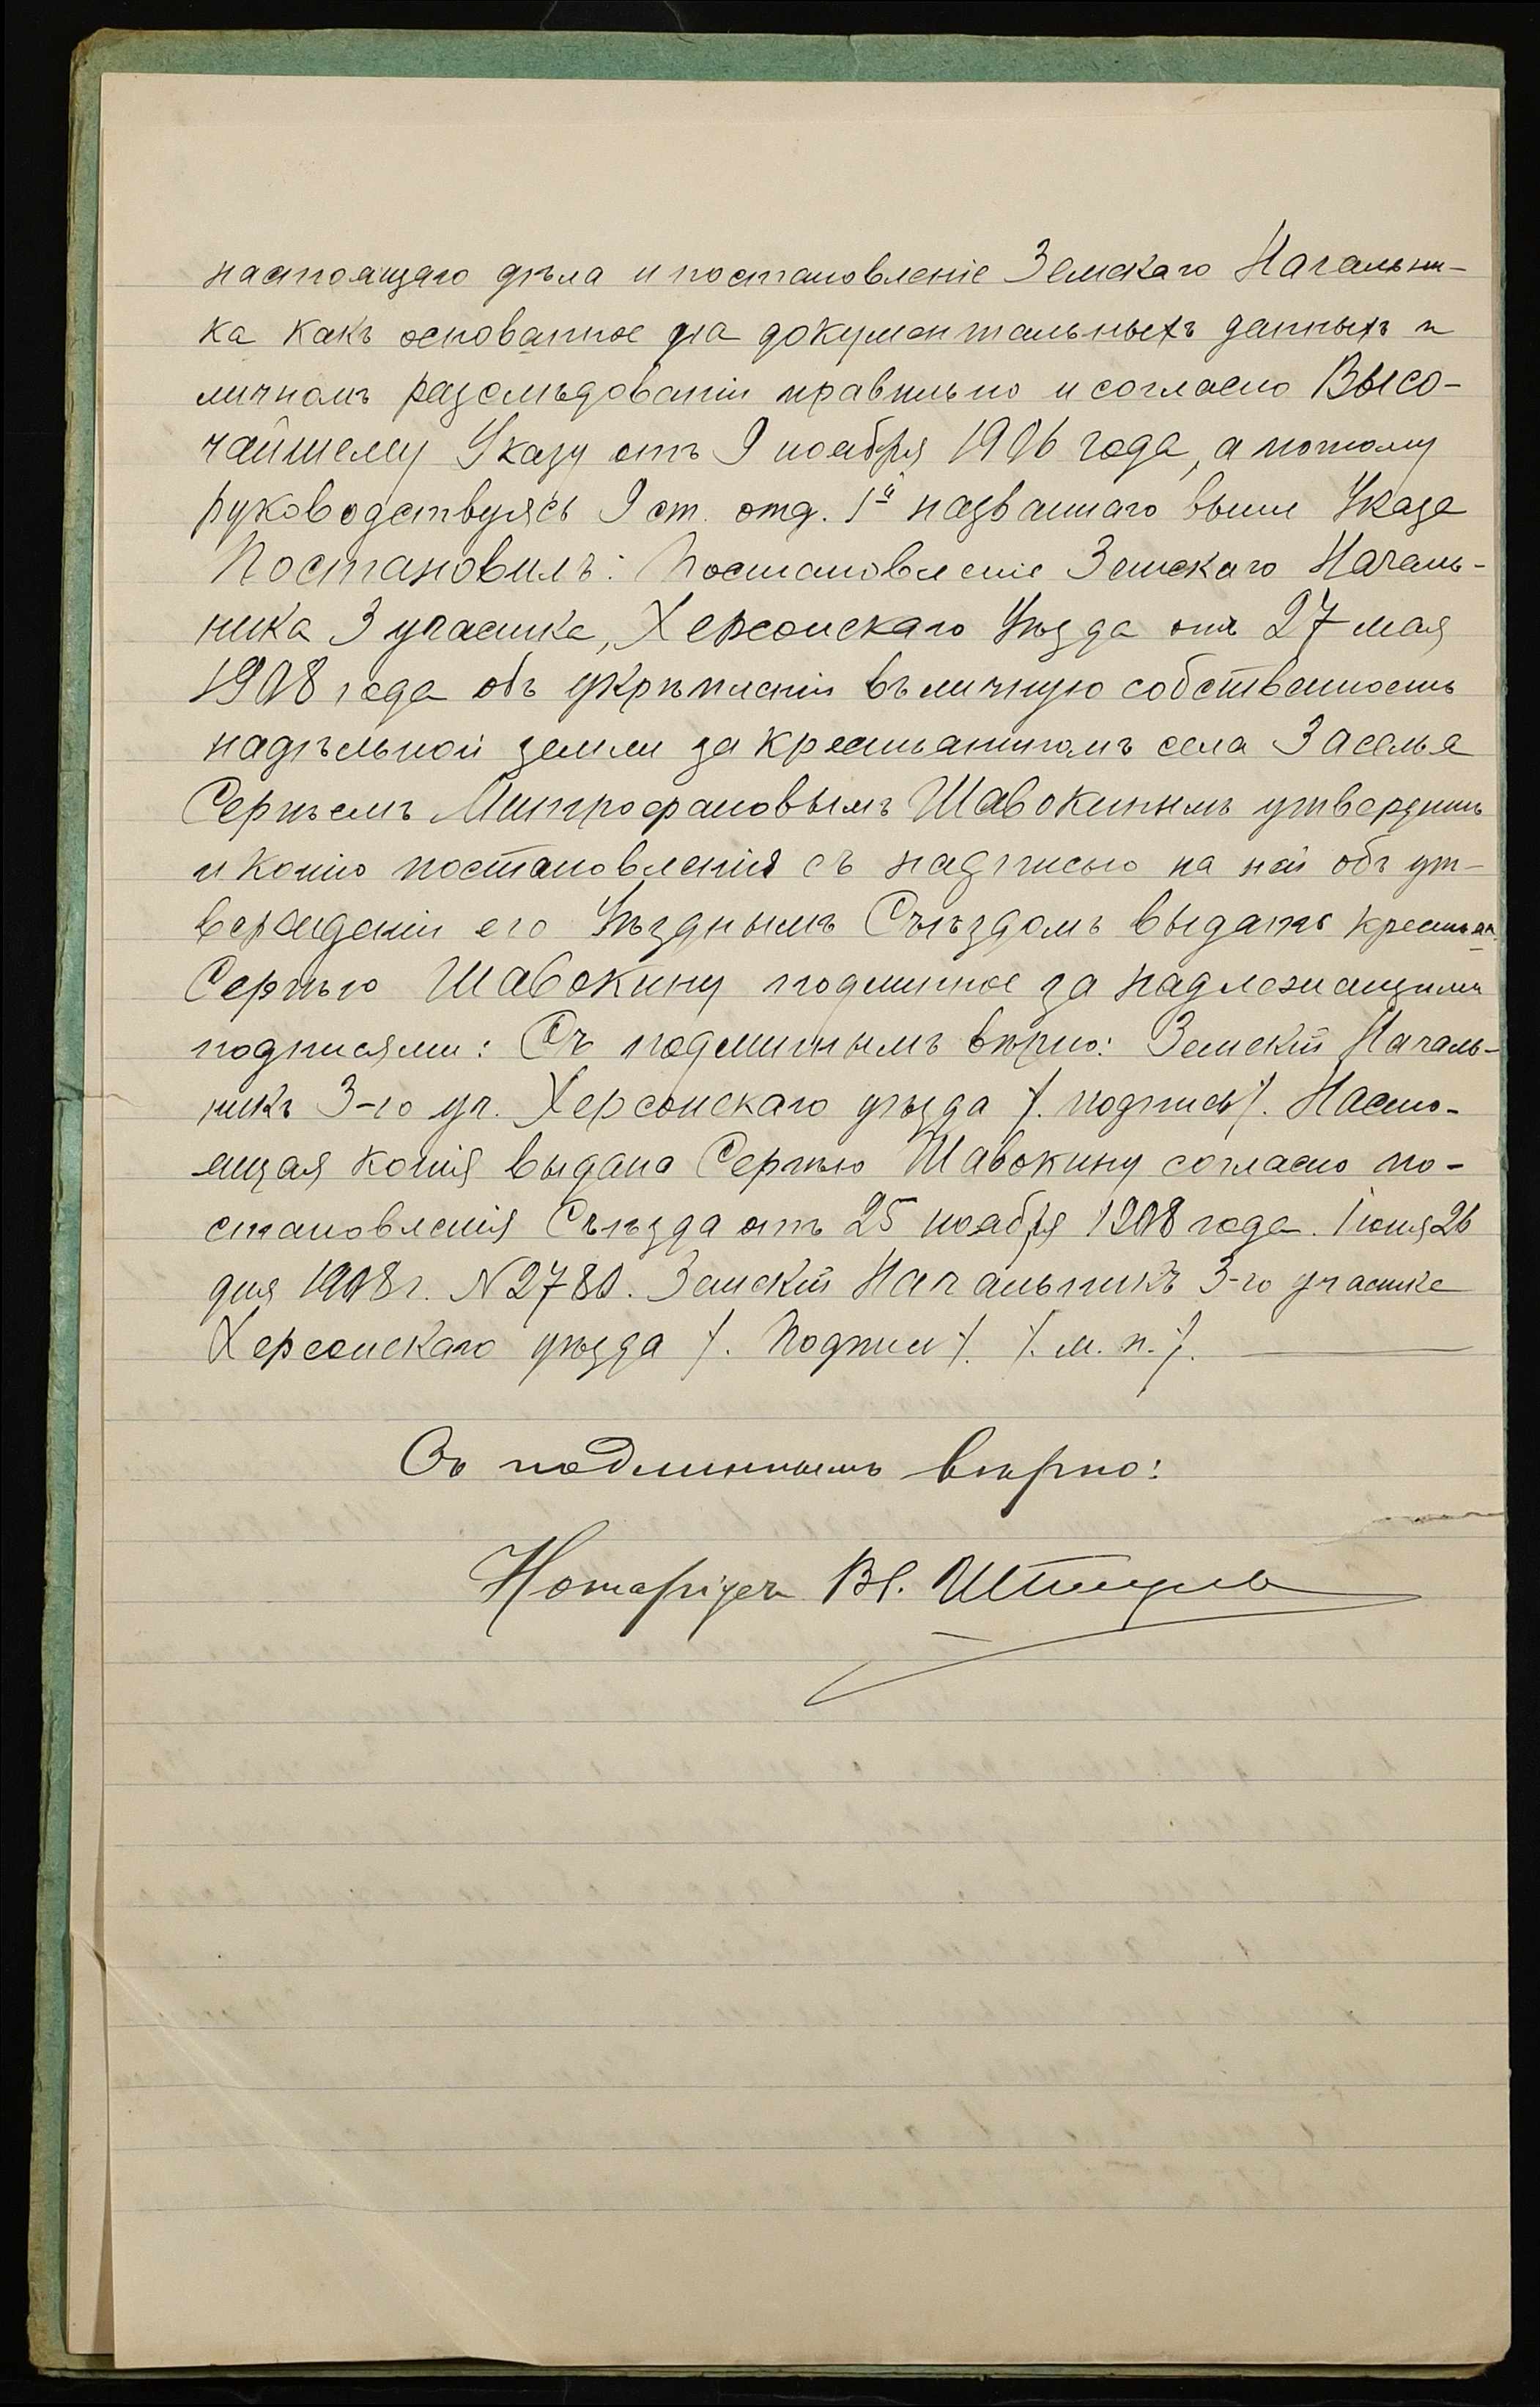 настоящаго дѣла и постановленіе Земскаго Начальни-
ка какъ основанное на документальныхъ данныхъ и
личномъ разслѣдованіи правильно и согласно Высо-
чайшему Указу отъ 9 ноября 1906 года, а потому
руководствуясь 9 ст. отд. 1й названнаго выше Указа
Постановилъ: Постановленіе Земскаго Началь-
ника 3 участка, Херсонскаго Уѣзда отъ 27 мая
1908 года объ укрѣпленіи въ личную собственность
надѣльной земли за крестьяниномъ села Заселья
Сергѣемъ Митрофановымъ Шавокинымъ утвердить
и копію постановленія съ надписью на ней объ ут-
вержденіи его Уѣзднымъ Съѣздомъ выдать крестьян.
Сергѣю Шавокину подлинное за надлежащими
подписями: Съ подлиннымъ вѣрно: Земскій Началь-
никъ 3-го уч. Херсонскаго уѣзда /. подпись/. Насто-
ящая копія выдана Сергѣю Шавокину согласно по-
становленія Съѣзда отъ 25 ноября 1908 года. Іюня 26
дня 1908 г. N 2780. Земскій Начальникъ 3-го участка
Херсонскаго уѣзда /. Подпись/. /. м. п./.
Съ подлиннымъ вѣрно:
Нотаріусъ Вл.